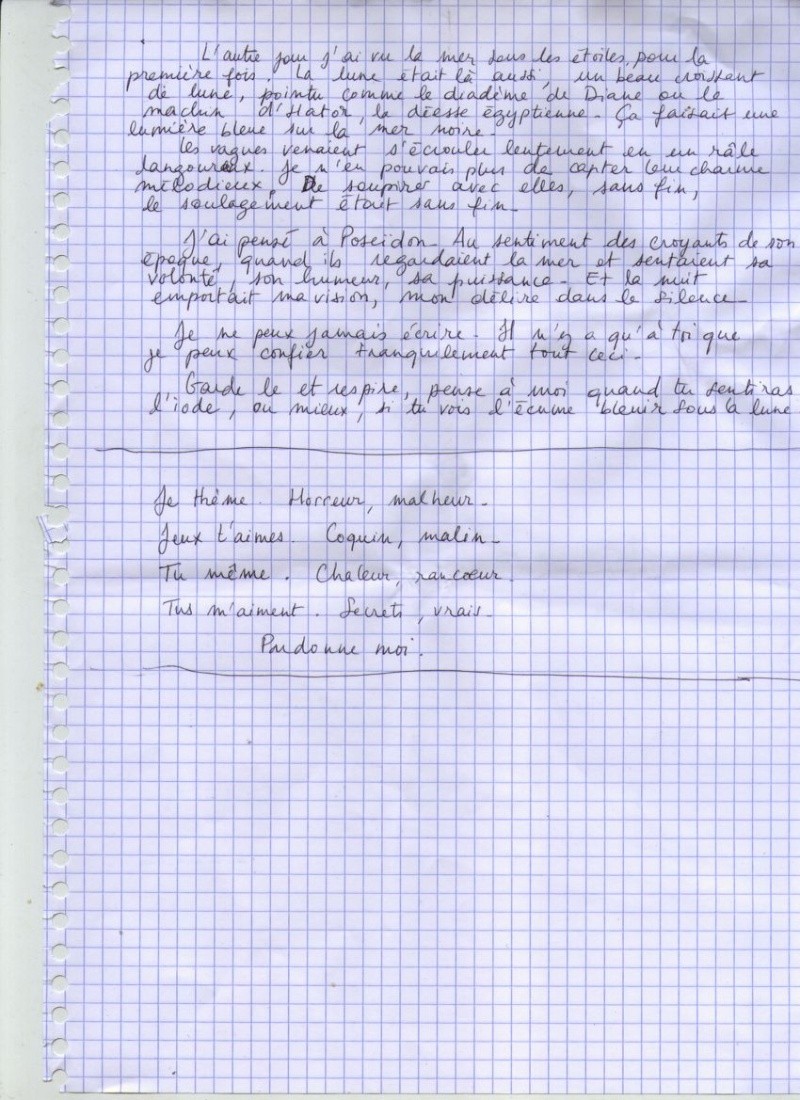 L'autre jour j'ai vu la mer sous les étoiles, pour la
première fois. La lune était là aussi, un beau croissant
de lune, pointu comme le diadème de Diane ou le
d'Hator, la déesse égyptienne. Ça faisait une
lumière bleue sur la mer noire.
Les vagues venaient s'écrouler lentement en un râle
langoureux. Je n'en pouvais plus de capter leur charme
mélodieux, De soupirer avec elles, sans fin,
le soulagement était sans fin.
J'ai pensé à Poseïdon. Au sentiment des croyants de son
époque, quand ils regardaient la mer et sentaient sa
volonté, son humeur, sa puissance. Et la nuit
emportait ma vision, mon délire dans le silence.
Je ne peux jamais écrire. Il n'y a qu'à toi que
je peux confier tranquilement tout ceci.
Garde le et respire, pense à moi quand tu sentiras
l'iode, ou mieux, si tu vois l'écume bleuir sous la lune
Je thème. Horreur, malheur.
Jeux t'aimes. Coquin, malin.
Tu même. Chaleur, rancoeur.
Tus m'aiment. Secrets, vrais.
Pardonne moi.